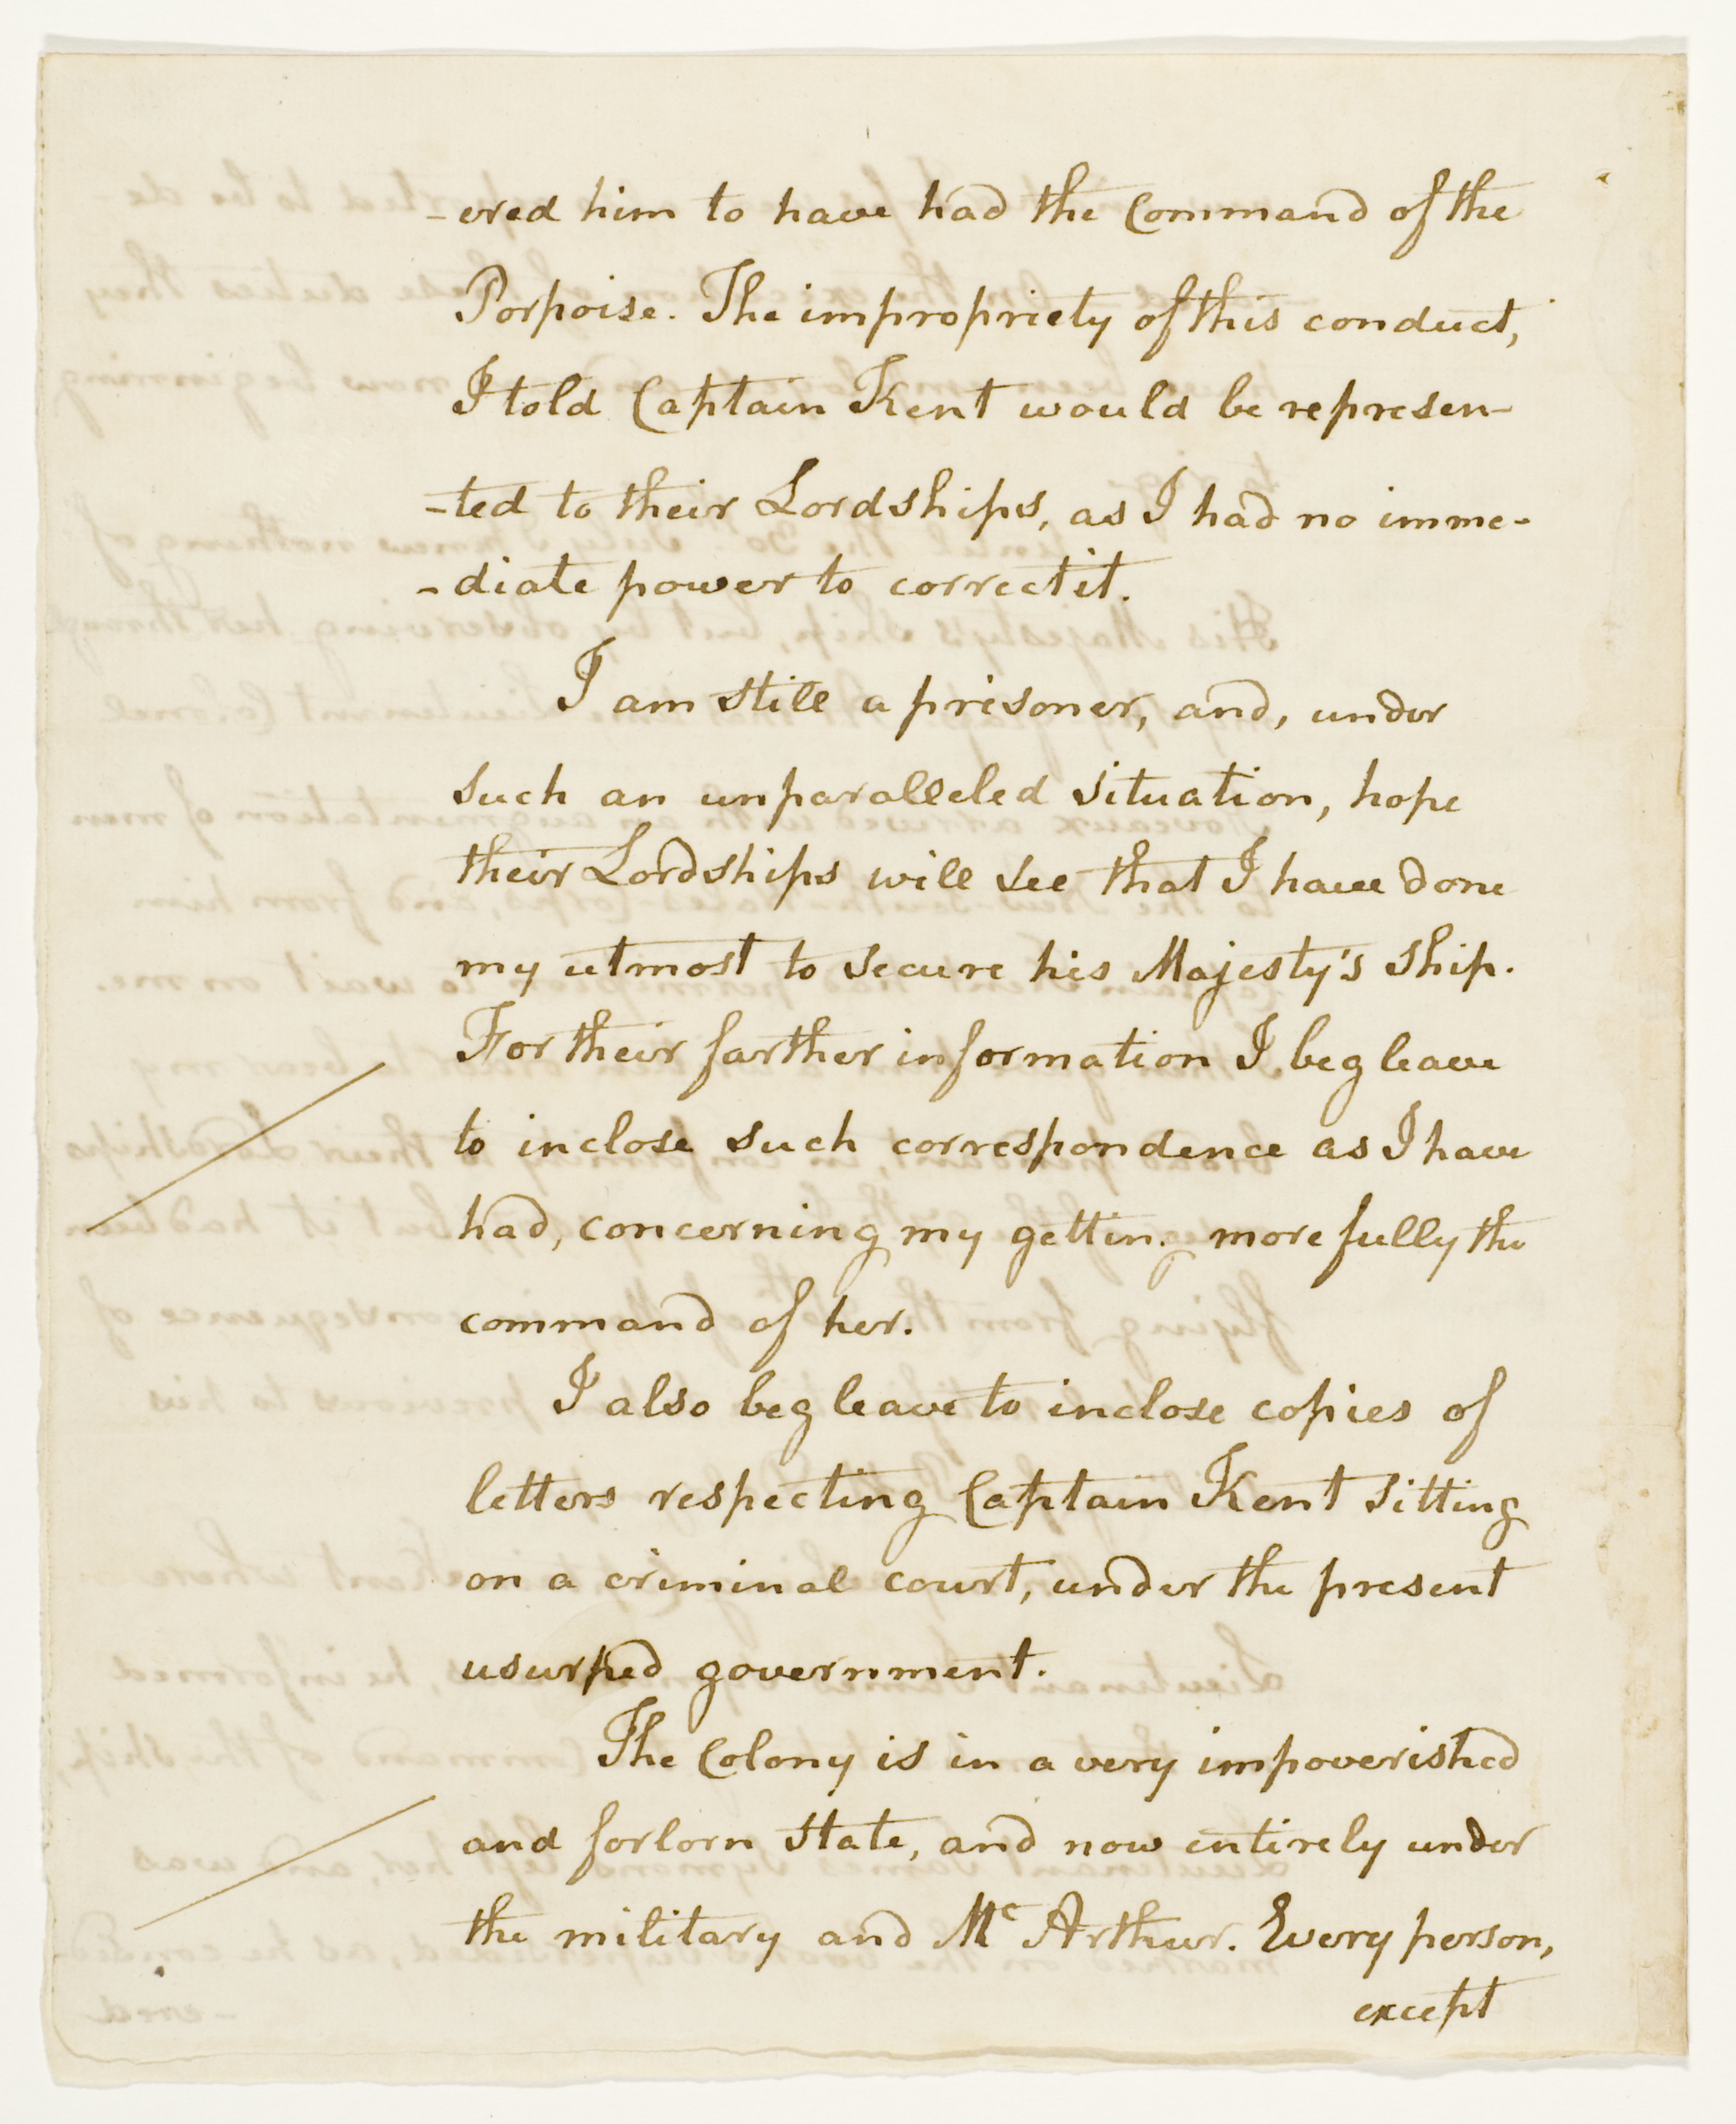 -ered him to have had the Command of the
Porpoise. The impropriety of this conduct,
I told Captain Kent would be represen-
-ted to their Lordships, as I had no imme-
-diate power to correct it.
I am still a prisoner, and, under
such an unparalleled situation, hope
their Lordships will see that I have done
my utmost to secure his Majesty's Ship.
For their farther information I beg leave
to inclose such correspondence as I have
had, concerning my getting more fully the
command of her.
I also beg leave to inclose copies of
letters respecting Captain Kent sitting
on a criminal court, under the present
usurped government.
The Colony is in a very impoverished
and forlorn state, and now entirely under
the military and Mc Arthur. Every person,
except